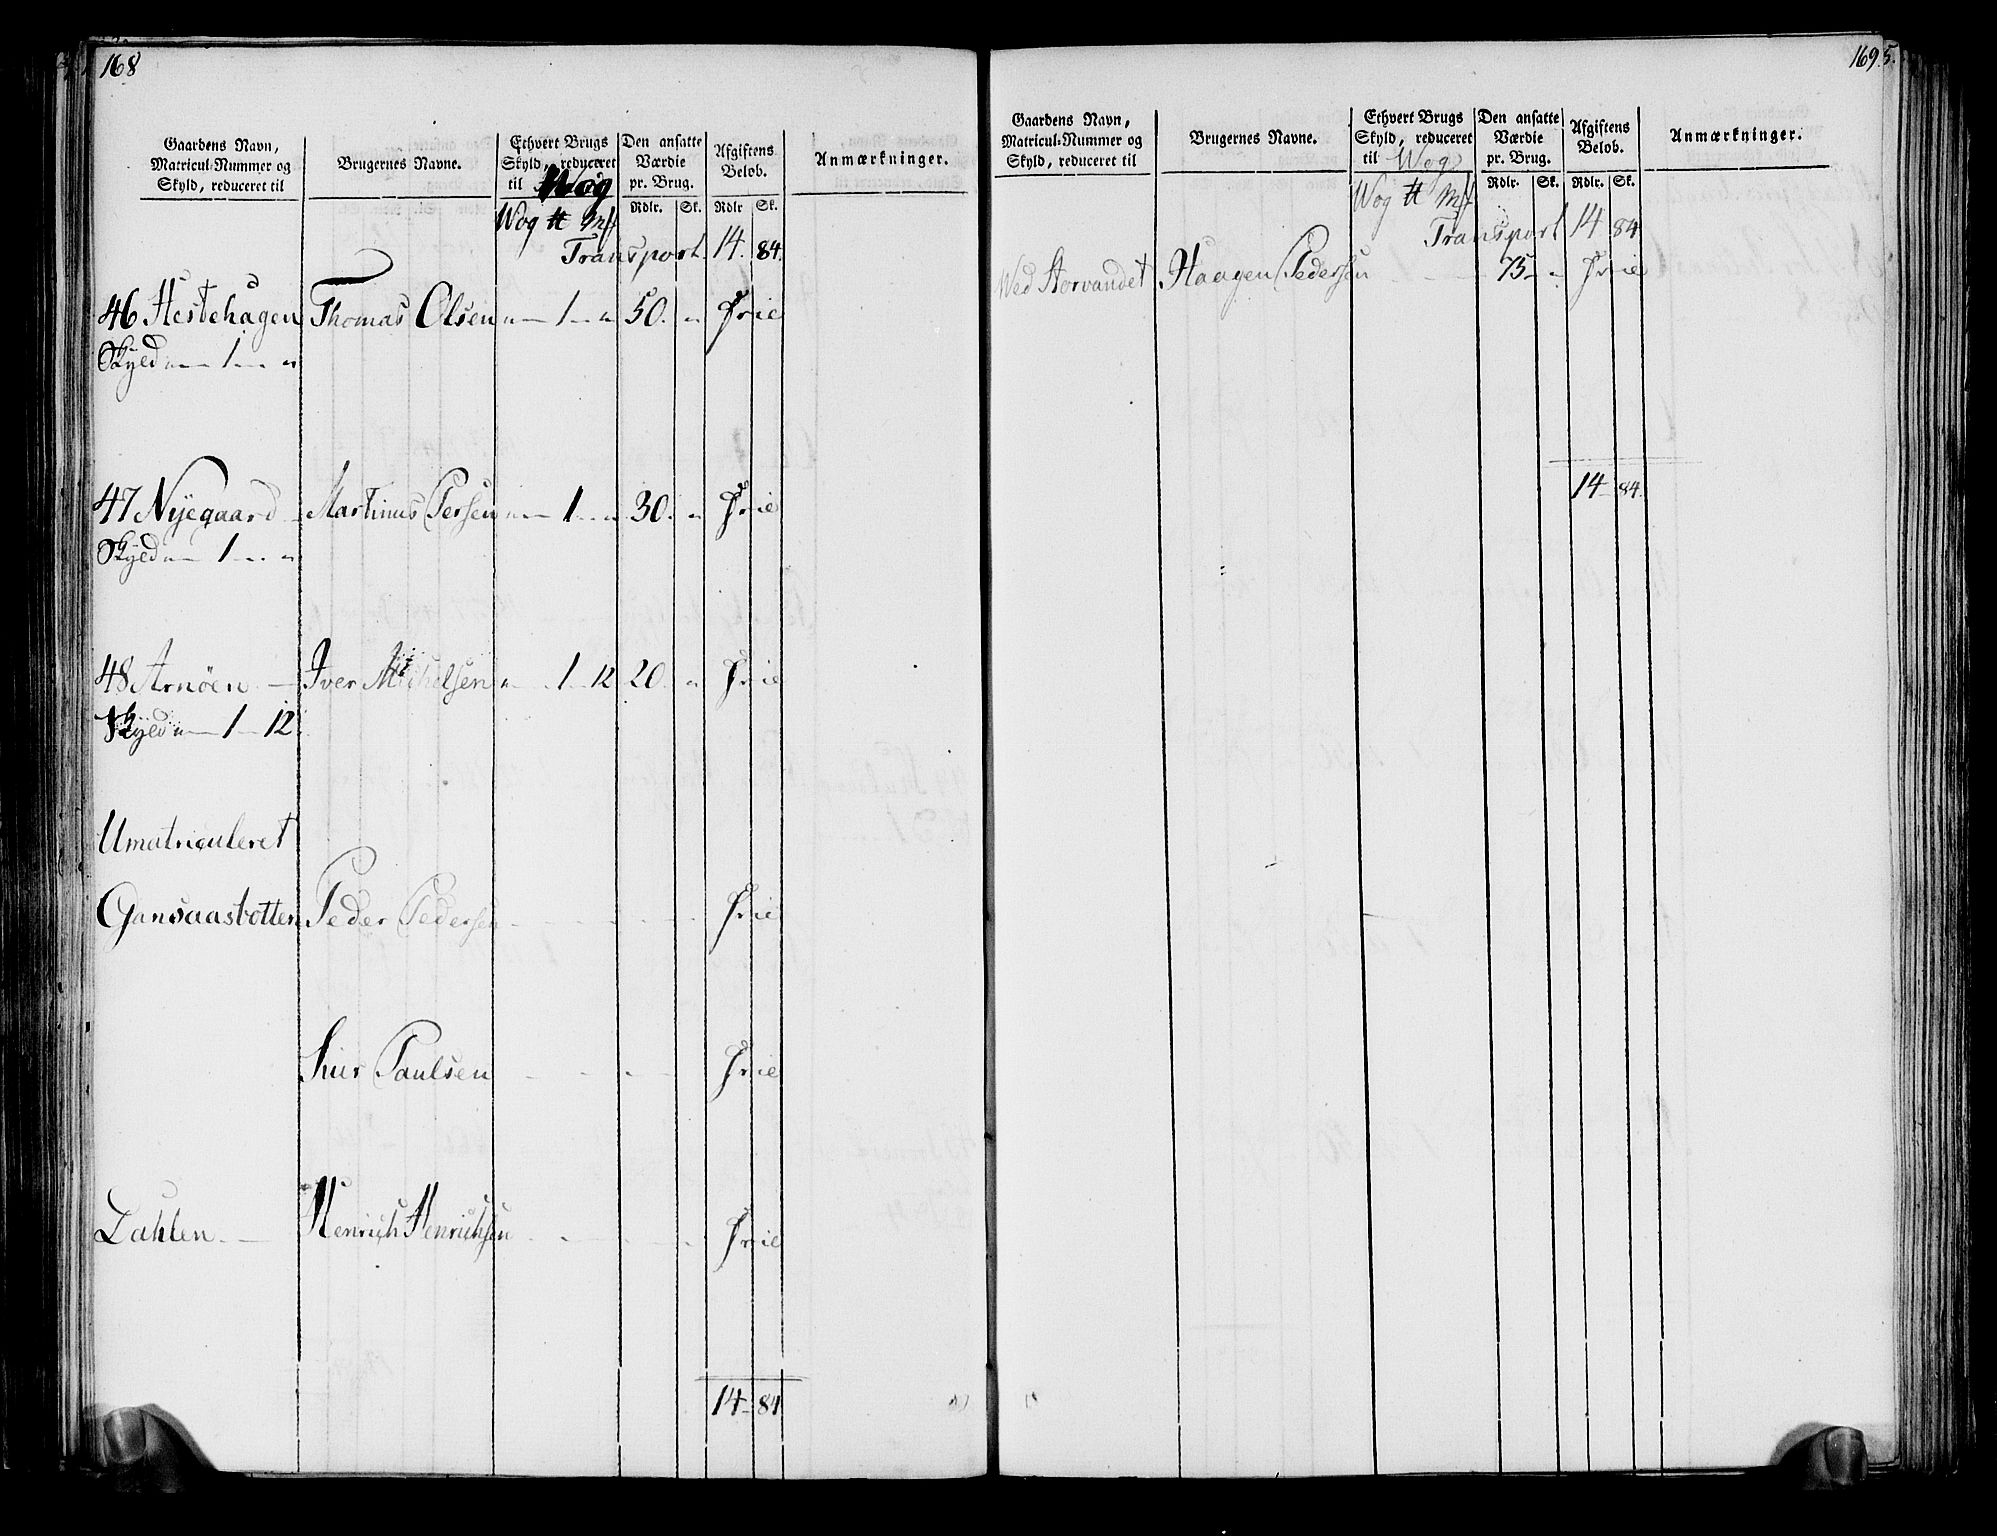 168
Gaardens Navn, Matricul-Nummer og Skyld, reduceret til | Brugernes Navne. | Ethvert Brugs Skyld, reduceret til Wog | Den ansatte Værdie pr. Brug. | Afgiftens Beløb. | Anmærkninger.
Wog ℔ Mk | Rdlr. | Sk. | Rdlr | Sk.
Transport 14. 84.
46 Hestehagen Thomas Olsen „ — 1 — „ 50. „ Frie
Skyld „ — 1 — „
47 Nyegaard — Martinus Persen „ — 1 — „ 30. „ Frie
Skyld „ — 1 — „
48 Arnøen — Iver Michelsen „ — 1 — 12 20. „ Frie
Skyld „ — 1 — 12
Umatriculeret
Gansaasbotten Peder Pedersen - - - - Frie
Siur Paulsen - - - - Frie
Dahlen — Henrich Henrichsen - - - - Frie
14 — 84
169
Gaardens Navn, Matricul-Nummer og Skyld, reduceret til | Brugernes Navne. | Ethvert Brugs Skyld, reduceret til Wog | Den ansatte Værdie pr. Brug. | Afgiftens Beløb. | Anmærkninger.
Wog ℔ Mk | Rdlr. | Sk. | Rdlr. | Sk.
Transport 14 84
Wed Horvandet Haagen Pedersen - - 75 — „ Frie
14 — 84.